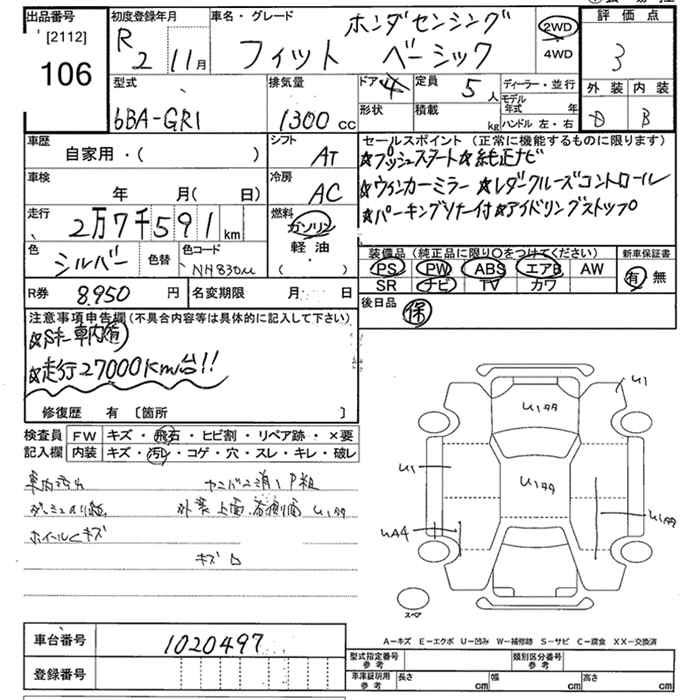 出品番号
[2112]
106
初度登録年月
R 2 11月
車名・グレード
ホンダセンシング
フィット ベーシック
2WD
4WD
評価点
3
型式
6BA-GR1
排気量
1300 cc
ドア 4
形状
定員 5 人
積載 kg
ディーラー・並行
モデル年式 年
ハンドル 左・右
外装 内装
D B
車歴
自家用・( )
シフト
AT
車検
年 月( 日)
冷房
AC
走行
2万7千591 km
燃料
ガソリン
軽油
・( )
色
シルバー
色替
色コード
NH830M
セールスポイント(正常に機能するものに限ります)
★プッシュスタート★純正ナビ
★ウインカーミラー ★レダクルーズコントロール
★パーキングソナー付★アイドリングストップ
装備品(純正品に限り〇をつけてください)
PS PW ABS エアB AW
SR ナビ TV カワ
新車保証書
有 無
R券 8,950 円
名変期限 月 日
後日品 保
注意事項申告欄(不具合内容等は具体的に記入して下さい)
★Sキー車内有
★走行27000Km台!!
修復歴 有 〔箇所 〕
検査員
記入欄
FW キズ・飛石・ヒビ割・リペア跡・×要
内装 キズ・汚レ・コゲ・穴・スレ・キレ・破レ
車内汚れ
外装上面、右側面 U1多
ホイールキズ
キズ
U1多
U1
U1
U1多
U1多
UA4
スペア
A−キズ E−エクボ U−凹み W−補修跡 S−サビ C−腐食 XX−交換済
車台番号 1020497
登録番号
型式指定番号
参考
類別区分番号
参考
車庫証明用
参考
長さ cm 幅 cm 高さ cm